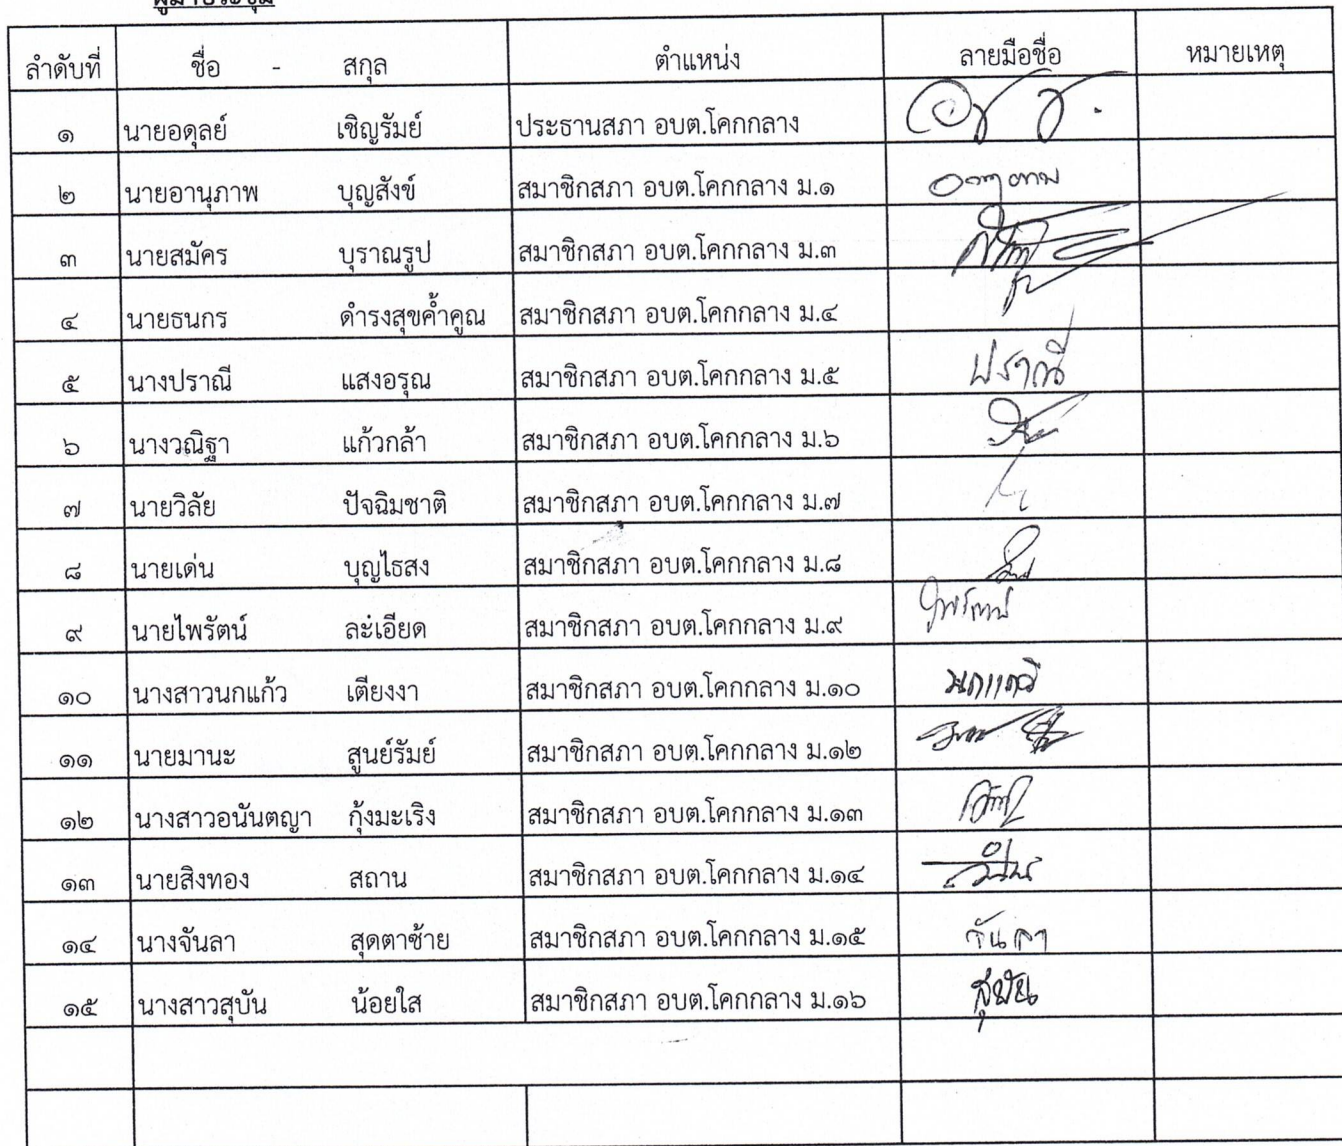 ผู้มาประชุม
ลำดับที่ ชื่อ - สกุล ตำแหน่ง ลายมือชื่อ หมายเหตุ
๑ นายอดุลย์ เชิญรัมย์ ประธานสภา อบต.โคกกลาง
๒ นายอานุภาพ บุญสังข์ สมาชิกสภา อบต.โคกกลาง ม.๑
๓ นายสมัคร บุราณรูป สมาชิกสภา อบต.โคกกลาง ม.๓
๔ นายธนกร ดำรงสุขค้ำคูณ สมาชิกสภา อบต.โคกกลาง ม.๔
๕ นางปราณี แสงอรุณ สมาชิกสภา อบต.โคกกลาง ม.๕ ปราณี
๖ นางวณิฐา แก้วกล้า สมาชิกสภา อบต.โคกกลาง ม.๖
๗ นายวิลัย ปัจฉิมชาติ สมาชิกสภา อบต.โคกกลาง ม.๗
๘ นายเด่น บุญไธสง สมาชิกสภา อบต.โคกกลาง ม.๘
๙ นายไพรัตน์ ละเอียด สมาชิกสภา อบต.โคกกลาง ม.๙ ไพรัตน์
๑๐ นางสาวนกแก้ว เตียงงา สมาชิกสภา อบต.โคกกลาง ม.๑๐ นกแก้ว
๑๑ นายมานะ สูนย์รัมย์ สมาชิกสภา อบต.โคกกลาง ม.๑๒
๑๒ นางสาวอนันตญา กุ้งมะเริง สมาชิกสภา อบต.โคกกลาง ม.๑๓
๑๓ นายสิงทอง สถาน สมาชิกสภา อบต.โคกกลาง ม.๑๔
๑๔ นางจันลา สุดตาซ้าย สมาชิกสภา อบต.โคกกลาง ม.๑๕ จันลา
๑๕ นางสาวสุบัน น้อยใส สมาชิกสภา อบต.โคกกลาง ม.๑๖ สุบัน